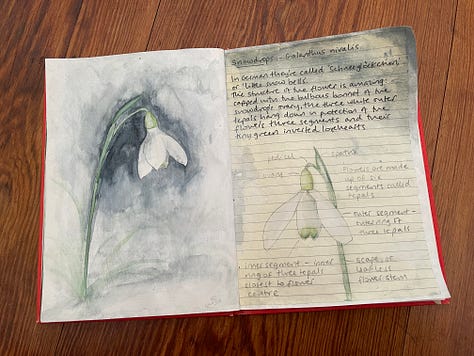 Snowdrops - Galanthus nivalis
In German they're called 'Schneeglöckchen'
or 'little snow bells.
The structure of the flower is amazing:
capped with the bulbous bonnet of the
snowdrops ovary, the three white outer
tepals hang down in protection of the
flowers three segments and their
tiny green inverted lovehearts
pedicel
spathe
ovary
Flowers are made
up of six
segments called
tepals
outer segment -
outer ring of
three tepals
inner segment - inner
ring of three tepals
closest to flower
centre
scape or
leafless
flower stem